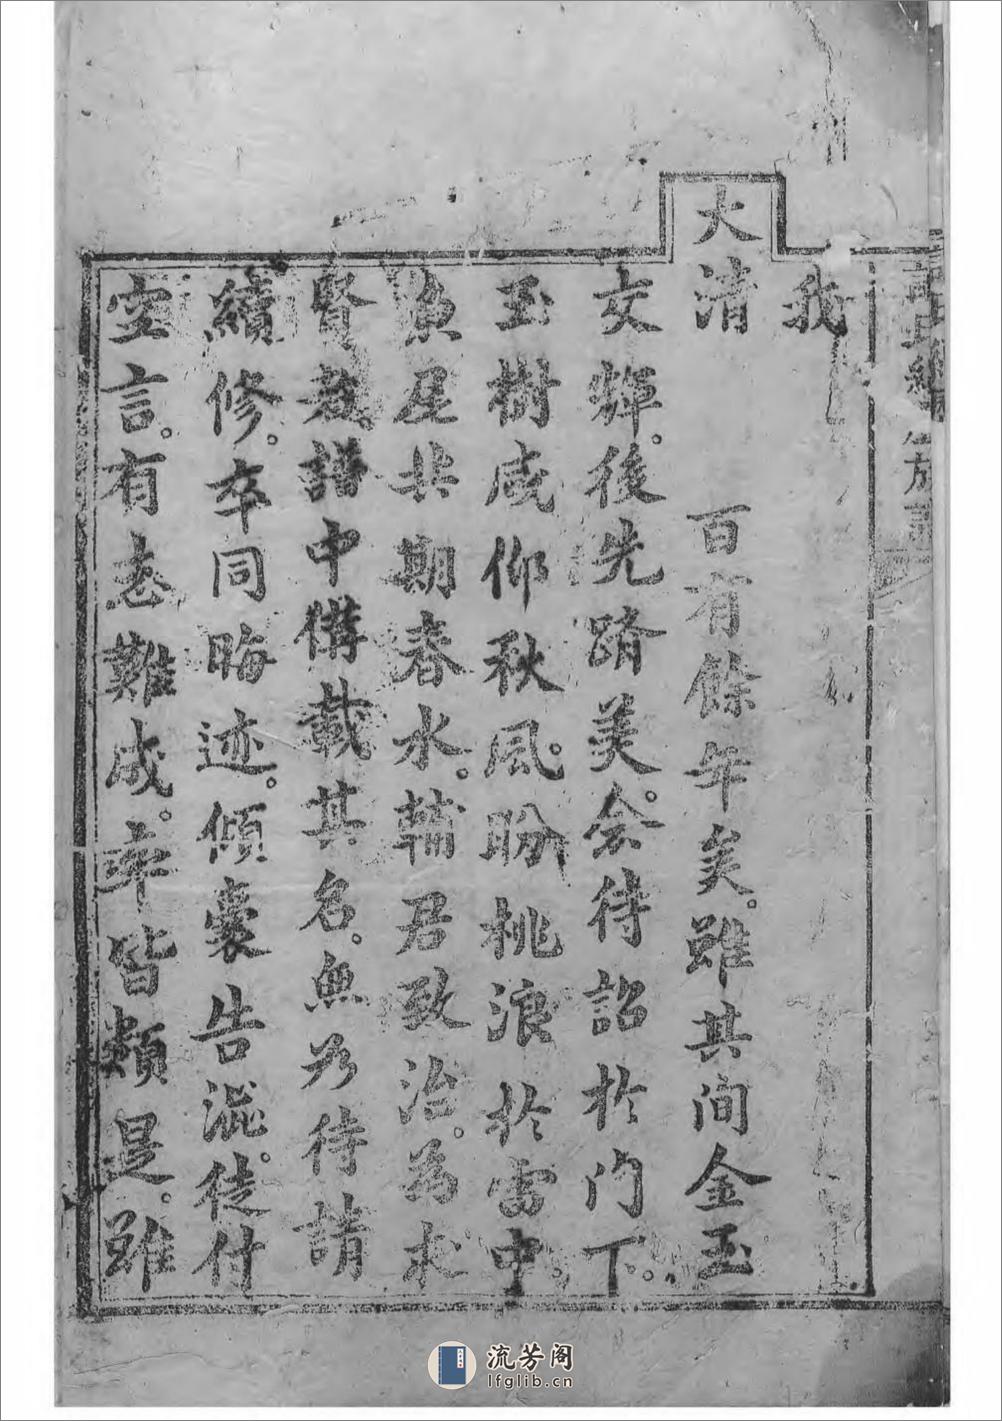 我
大清　　百有餘年矣。雖其間金玉
文輝。後先躋美。会待詔於门下。
玉樹咸仰秋風。盼桃浪於雷中。
魚尾共期春水。輔君致治。為求
賢哉。譜中備載其名。無为待請
續修。卒同晦迹。傾囊告澀。徒付
空言。有志難成。率皆類是。雖
族譜
流芳阁
lfglib.cn